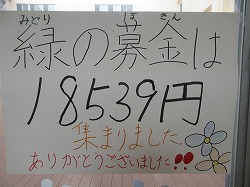 みどり ぼ きん
緑の募金は
18539円
集まりました。
ありがとうございました!!